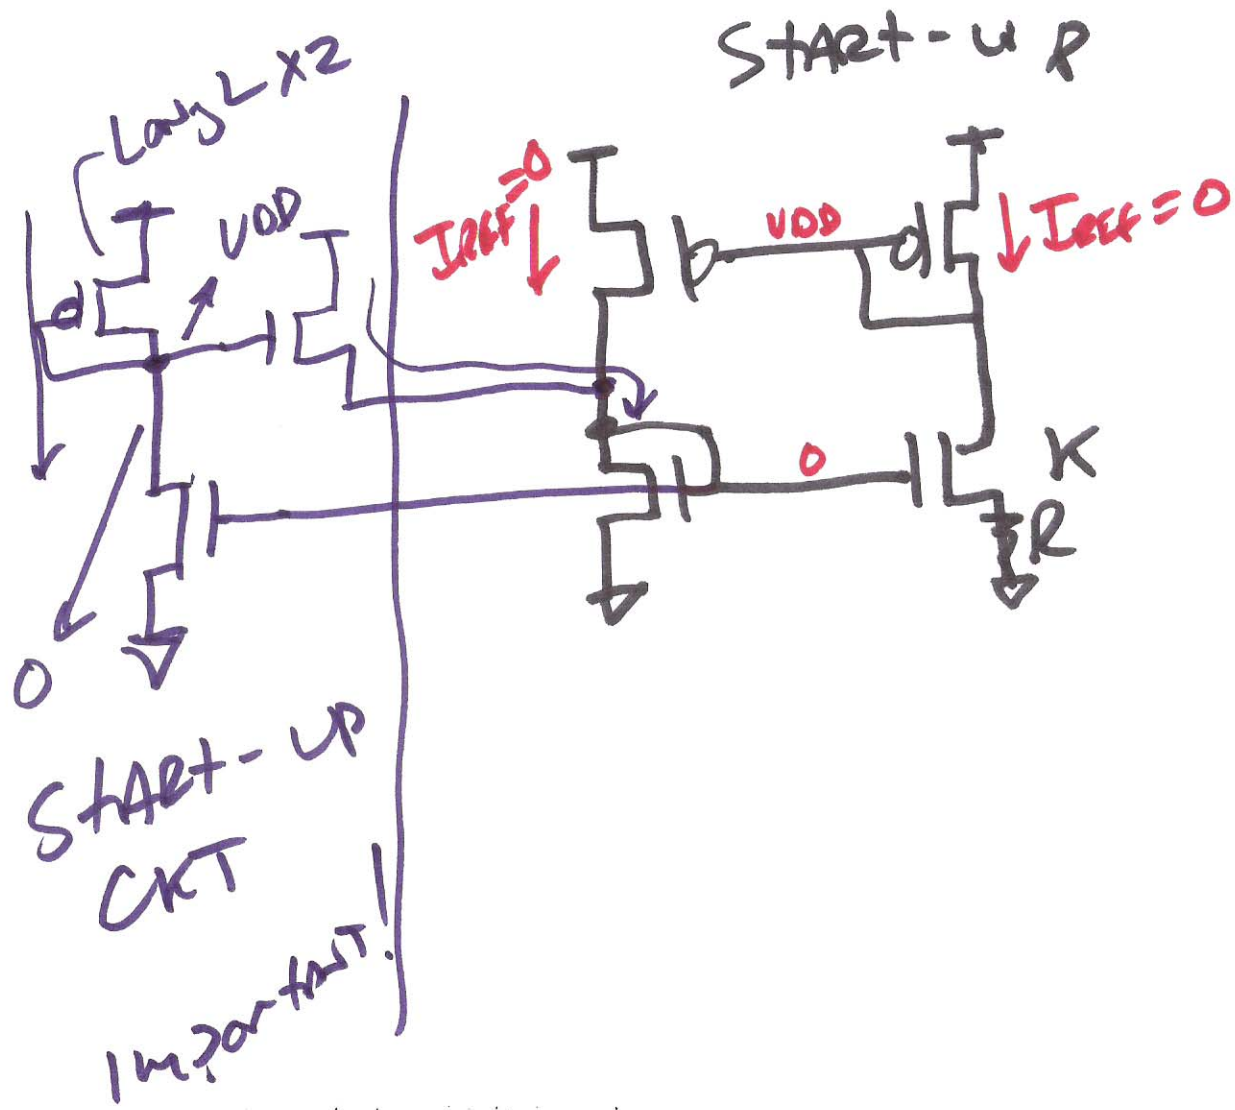 START-UP
Long L X2
VDD
IREF=0
VDD
IREF=0
0
K
R
0
START-UP
CKT
Important!